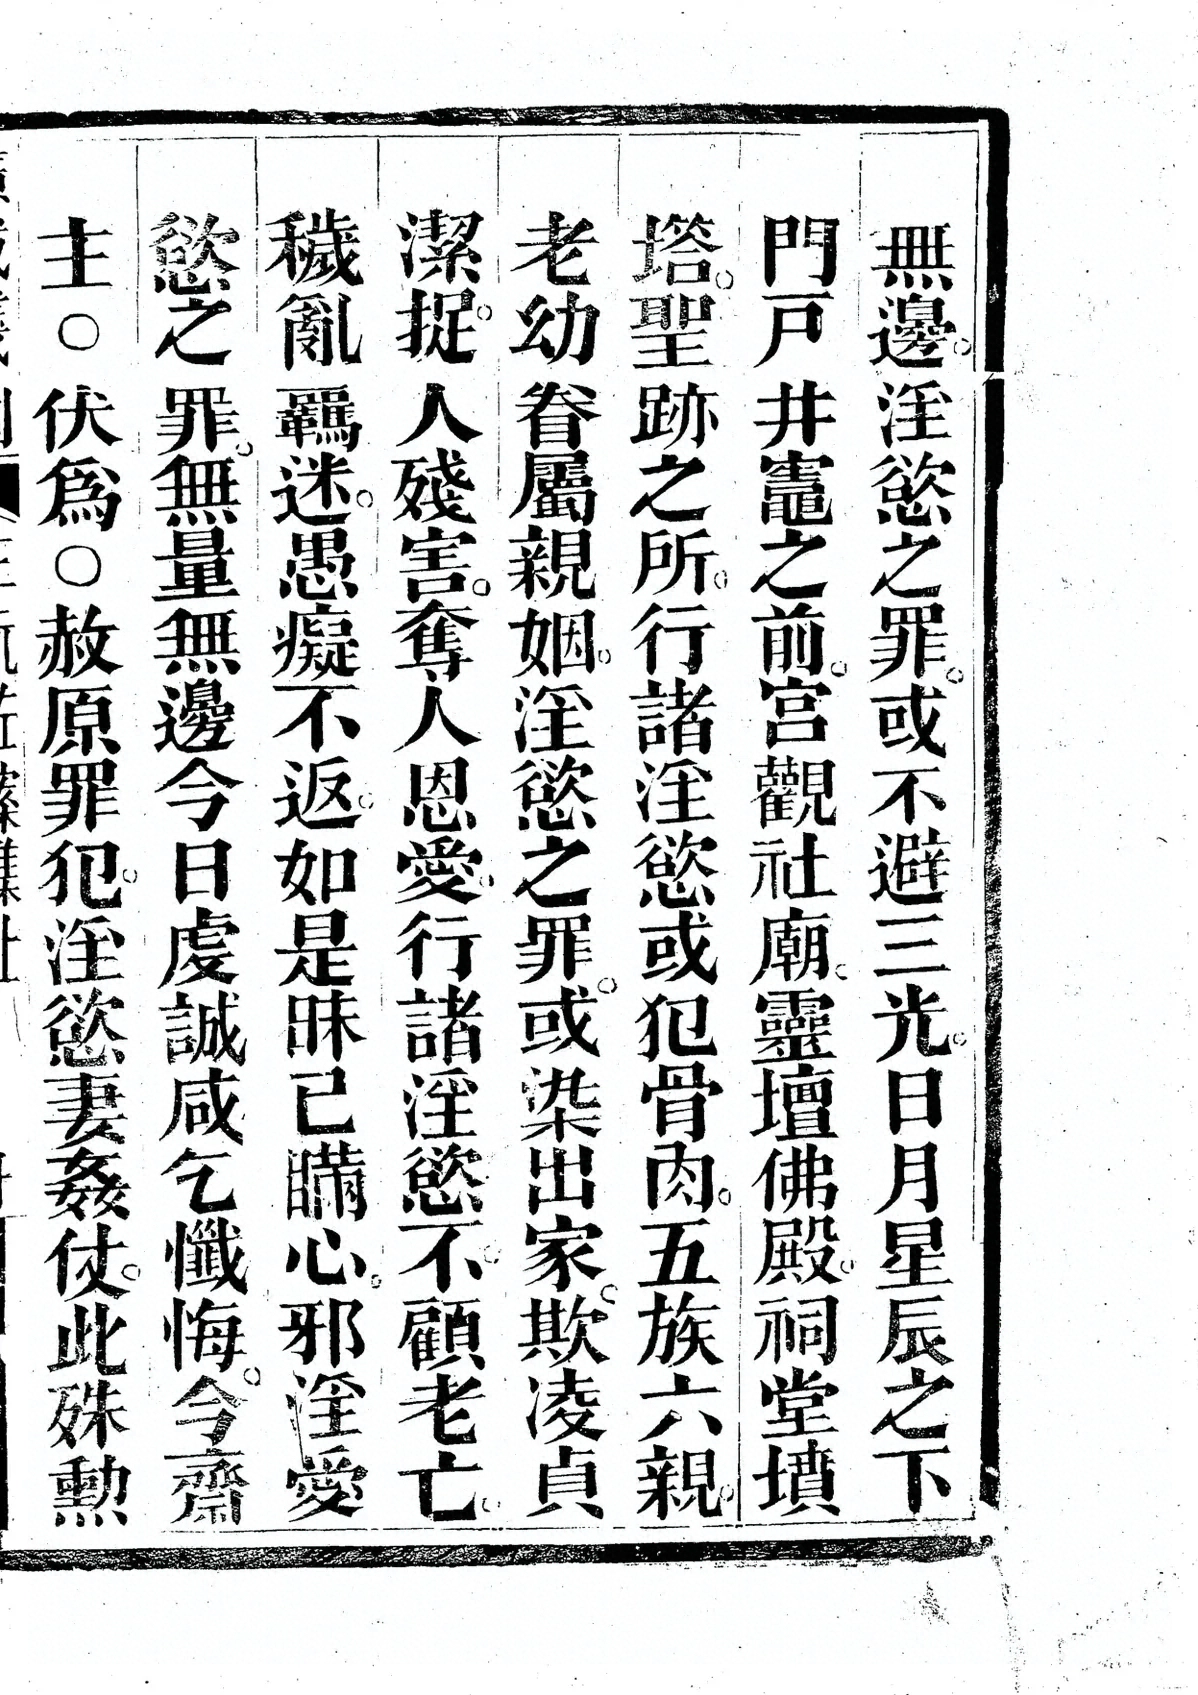 無邊。淫慾之罪。或不避三光。日月星辰之下
門戶井竈之前。宮觀社廟。靈壇佛殿。祠堂墳
塔。聖跡之所。行諸淫慾或犯骨肉。五族六親。
老幼眷屬親姻。淫慾之罪。或染出家。欺凌貞
潔。捉人殘害。奪人恩愛。行諸淫慾不。顧老亡。
穢亂羈迷。愚癡不返。如是昧已瞞心。邪淫愛
慾之罪。無量無邊今日虔誠咸乞懺悔。今齋
主○伏爲○赦原罪犯。淫慾妻姦仗。此殊勲